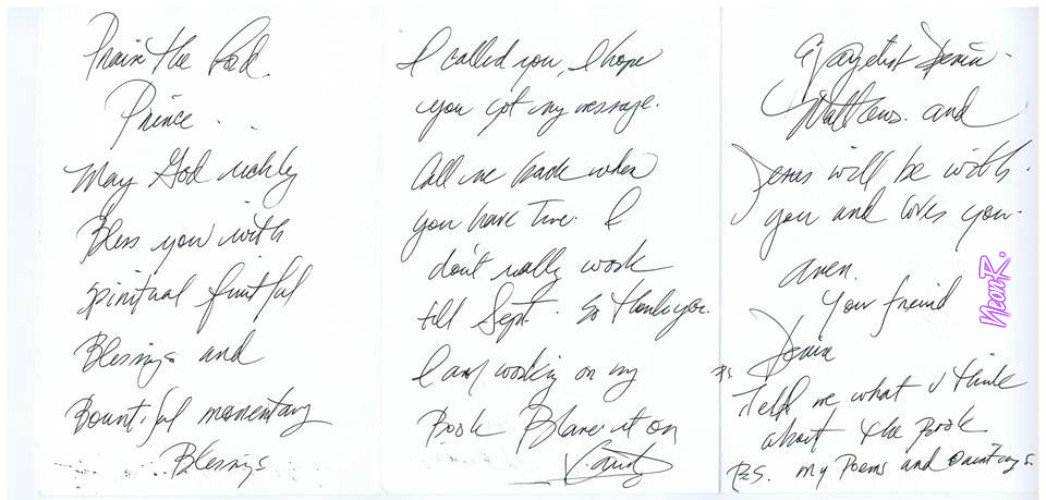 Praise the Lord.
Prince . .
May God richly
Bless you with
spiritual fruitful
Blessings and
Bountiful momentary
Blessings
I called you, I hope
you got my message.
Call me back when
you have Time. I
don't really work
till Sept. So thank you.
I am working on my
Book Blame it on
Vanity
Denia
Matthews. and
Jesus will be with
you and loves you.
amen.
Your friend
Denia
Ps Tell me what u think
about the Book
Ps. my Poems and Paintings.
NeonR.